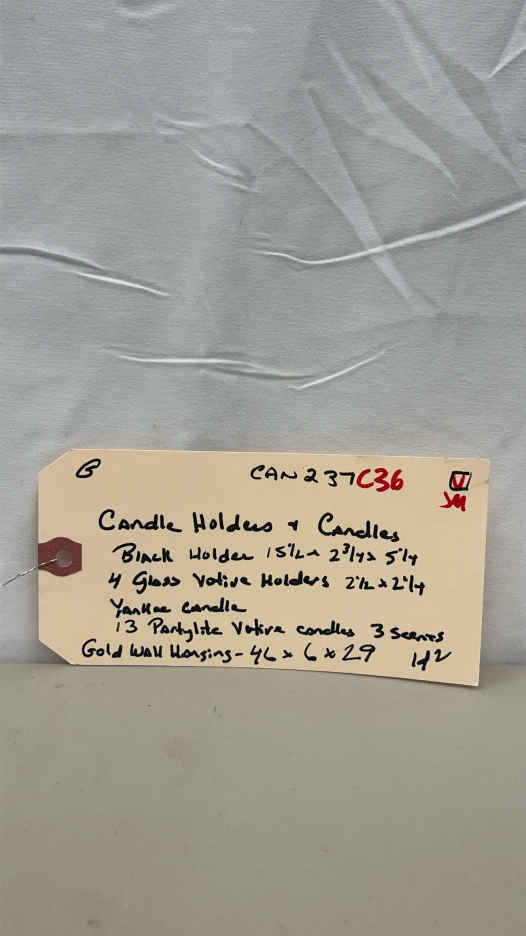 B CAN 237 C36 V
JM
Candle Holders + Candles
Black Holder 15 1/2 x 2 3/4 x 5 1/4
4 Glass Votive Holders 2 1/2 x 2 1/4
Yankee Candle
13 Partylite Votive candles 3 Scents
Gold Wall Hanging - 46 x 6 x 29 1 of 2